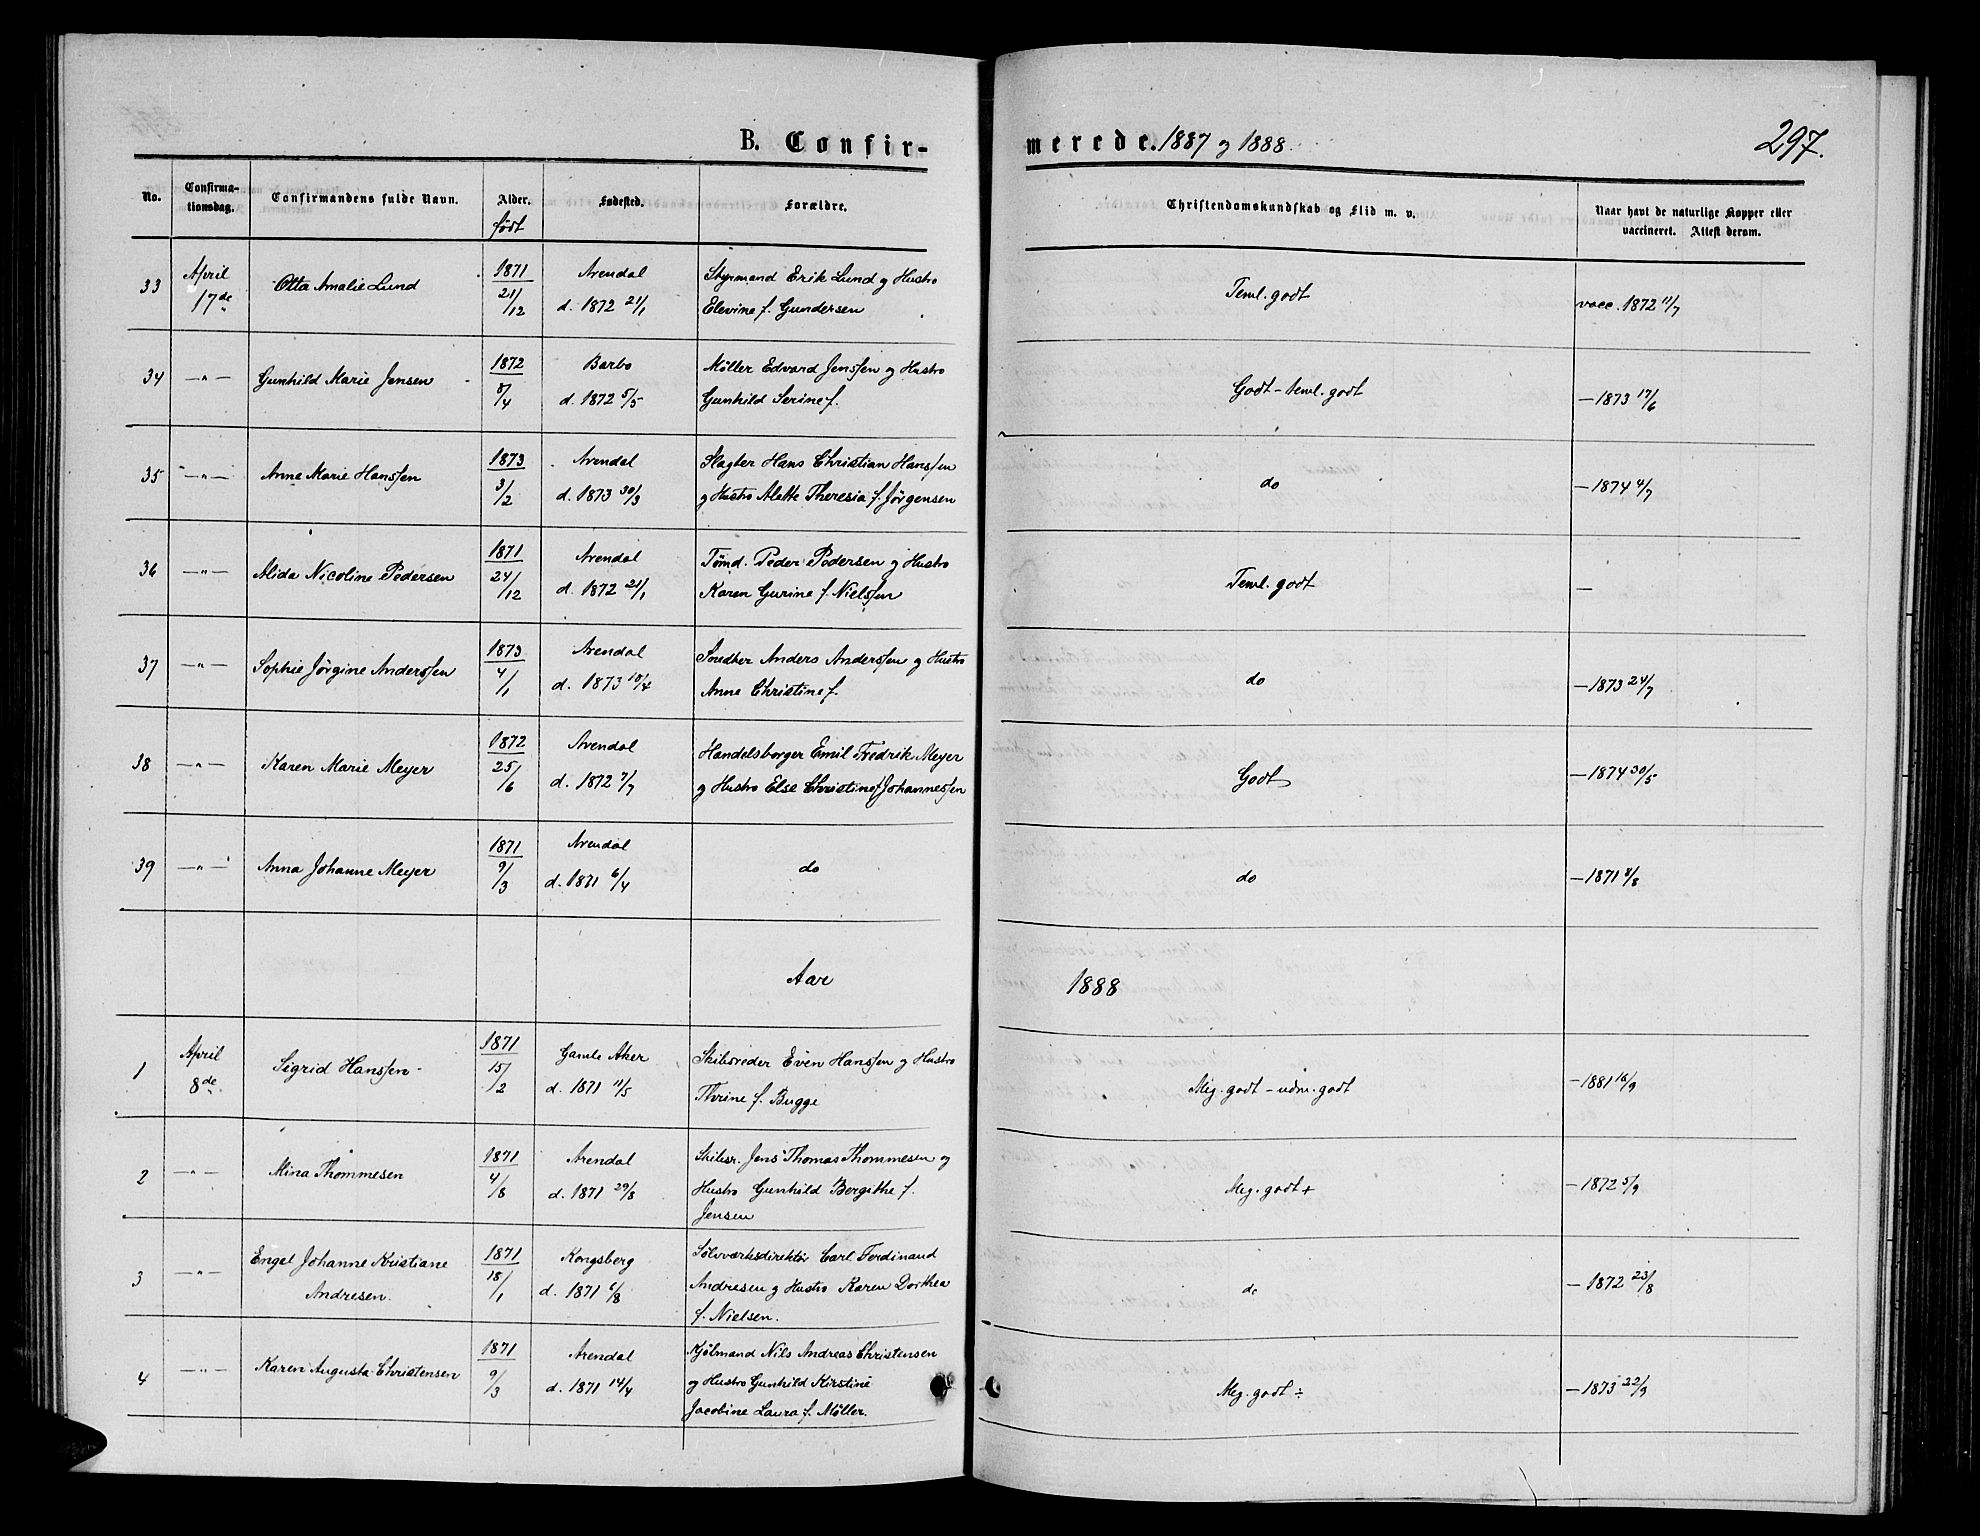 B. Confir-
merede. 1887 og 1888.
297.
No.
Confirma-
tionsdag.
Confirmandens fulde Navn.
Alder.
født
Fødested.
Forældre.
Christendomskundskab og Flid m. v.
Naar havt de naturlige Kopper eller
vaccineret. Attest derom.
33 April 17de Otta Amalie Lund 1871 21/12 Arendal d. 1872 21/1
Styrmand Erik Lund og Hustro
Elevine f. Gundersen
Teml. godt
vacc. 1872 11/7
34 —"— Gunhild Marie Jensen 1872 8/4 Barbo d. 1872 5/5
Møller Edvard Jenssen og Hustro
Gunhild Serine f.
Godt - teml. godt
— 1873 17/6
35 —"— Anne Marie Hanssen 1873 3/2 Arendal d. 1873 30/3
Slagter Hans Christian Hanssen
og Hustro Alette Theresia f. Jørgensen
do
— 1874 4/7
36 —"— Alida Nicoline Pedersen 1871 24/12 Arendal d. 1872 21/1
Tømd. Peder Pedersen og Hustro
Karen Gurine f. Nielssen
Teml. godt
—
37 —"— Sophie Jørgine Anderssen 1873 4/1 Arendal d. 1873 18/4
Snedker Anders Anderssen og Hustro
Anne Christine f.
do
— 1873 24/7
38 —"— Karen Marie Meyer 1872 25/6 Arendal d. 1872 7/7
Handelsborger Emil Fredrik Meyer
og Hustro Else Christine f Johannessen
Godt
— 1874 30/5
39 —"— Anna Johanne Meyer 1871 9/3 Arendal d. 1871 6/4
do
do
— 1871 4/8
Aar 1888
1 April 8de Sigrid Hanssen 1871 15/2 Gamle Aker d. 1871 11/5
Skibsreder Even Hanssen og Hustro
Thrine f. Bugge
Meg. godt - udm. godt
— 1881 16/9
2 —"— Mina Thommesen 1871 4/8 Arendal d. 1871 29/8
Skibsr. Jens Thomas Thommesen og
Hustro Gunhild Bergithe f.
Jensen
Meg. godt +
— 1872 5/9
3 —"— Engel Johanne Kristiane
Andresen. 1871 18/1 Kongsberg d. 1871 6/8
Sølvværksdirektør Carl Ferdinand
Andresen og Hustro Karen Dorthea
f. Nielsen.
do
— 1872 23/8
4 —"— Karen Augusta Christensen 1871 9/3 Arendal d. 1871 14/4
Kjølmand Nils Andreas Christensen
og Hustro Gunhild Kirstine
Jacobine Laura f. Møller.
Meg. godt ÷
— 1873 22/9